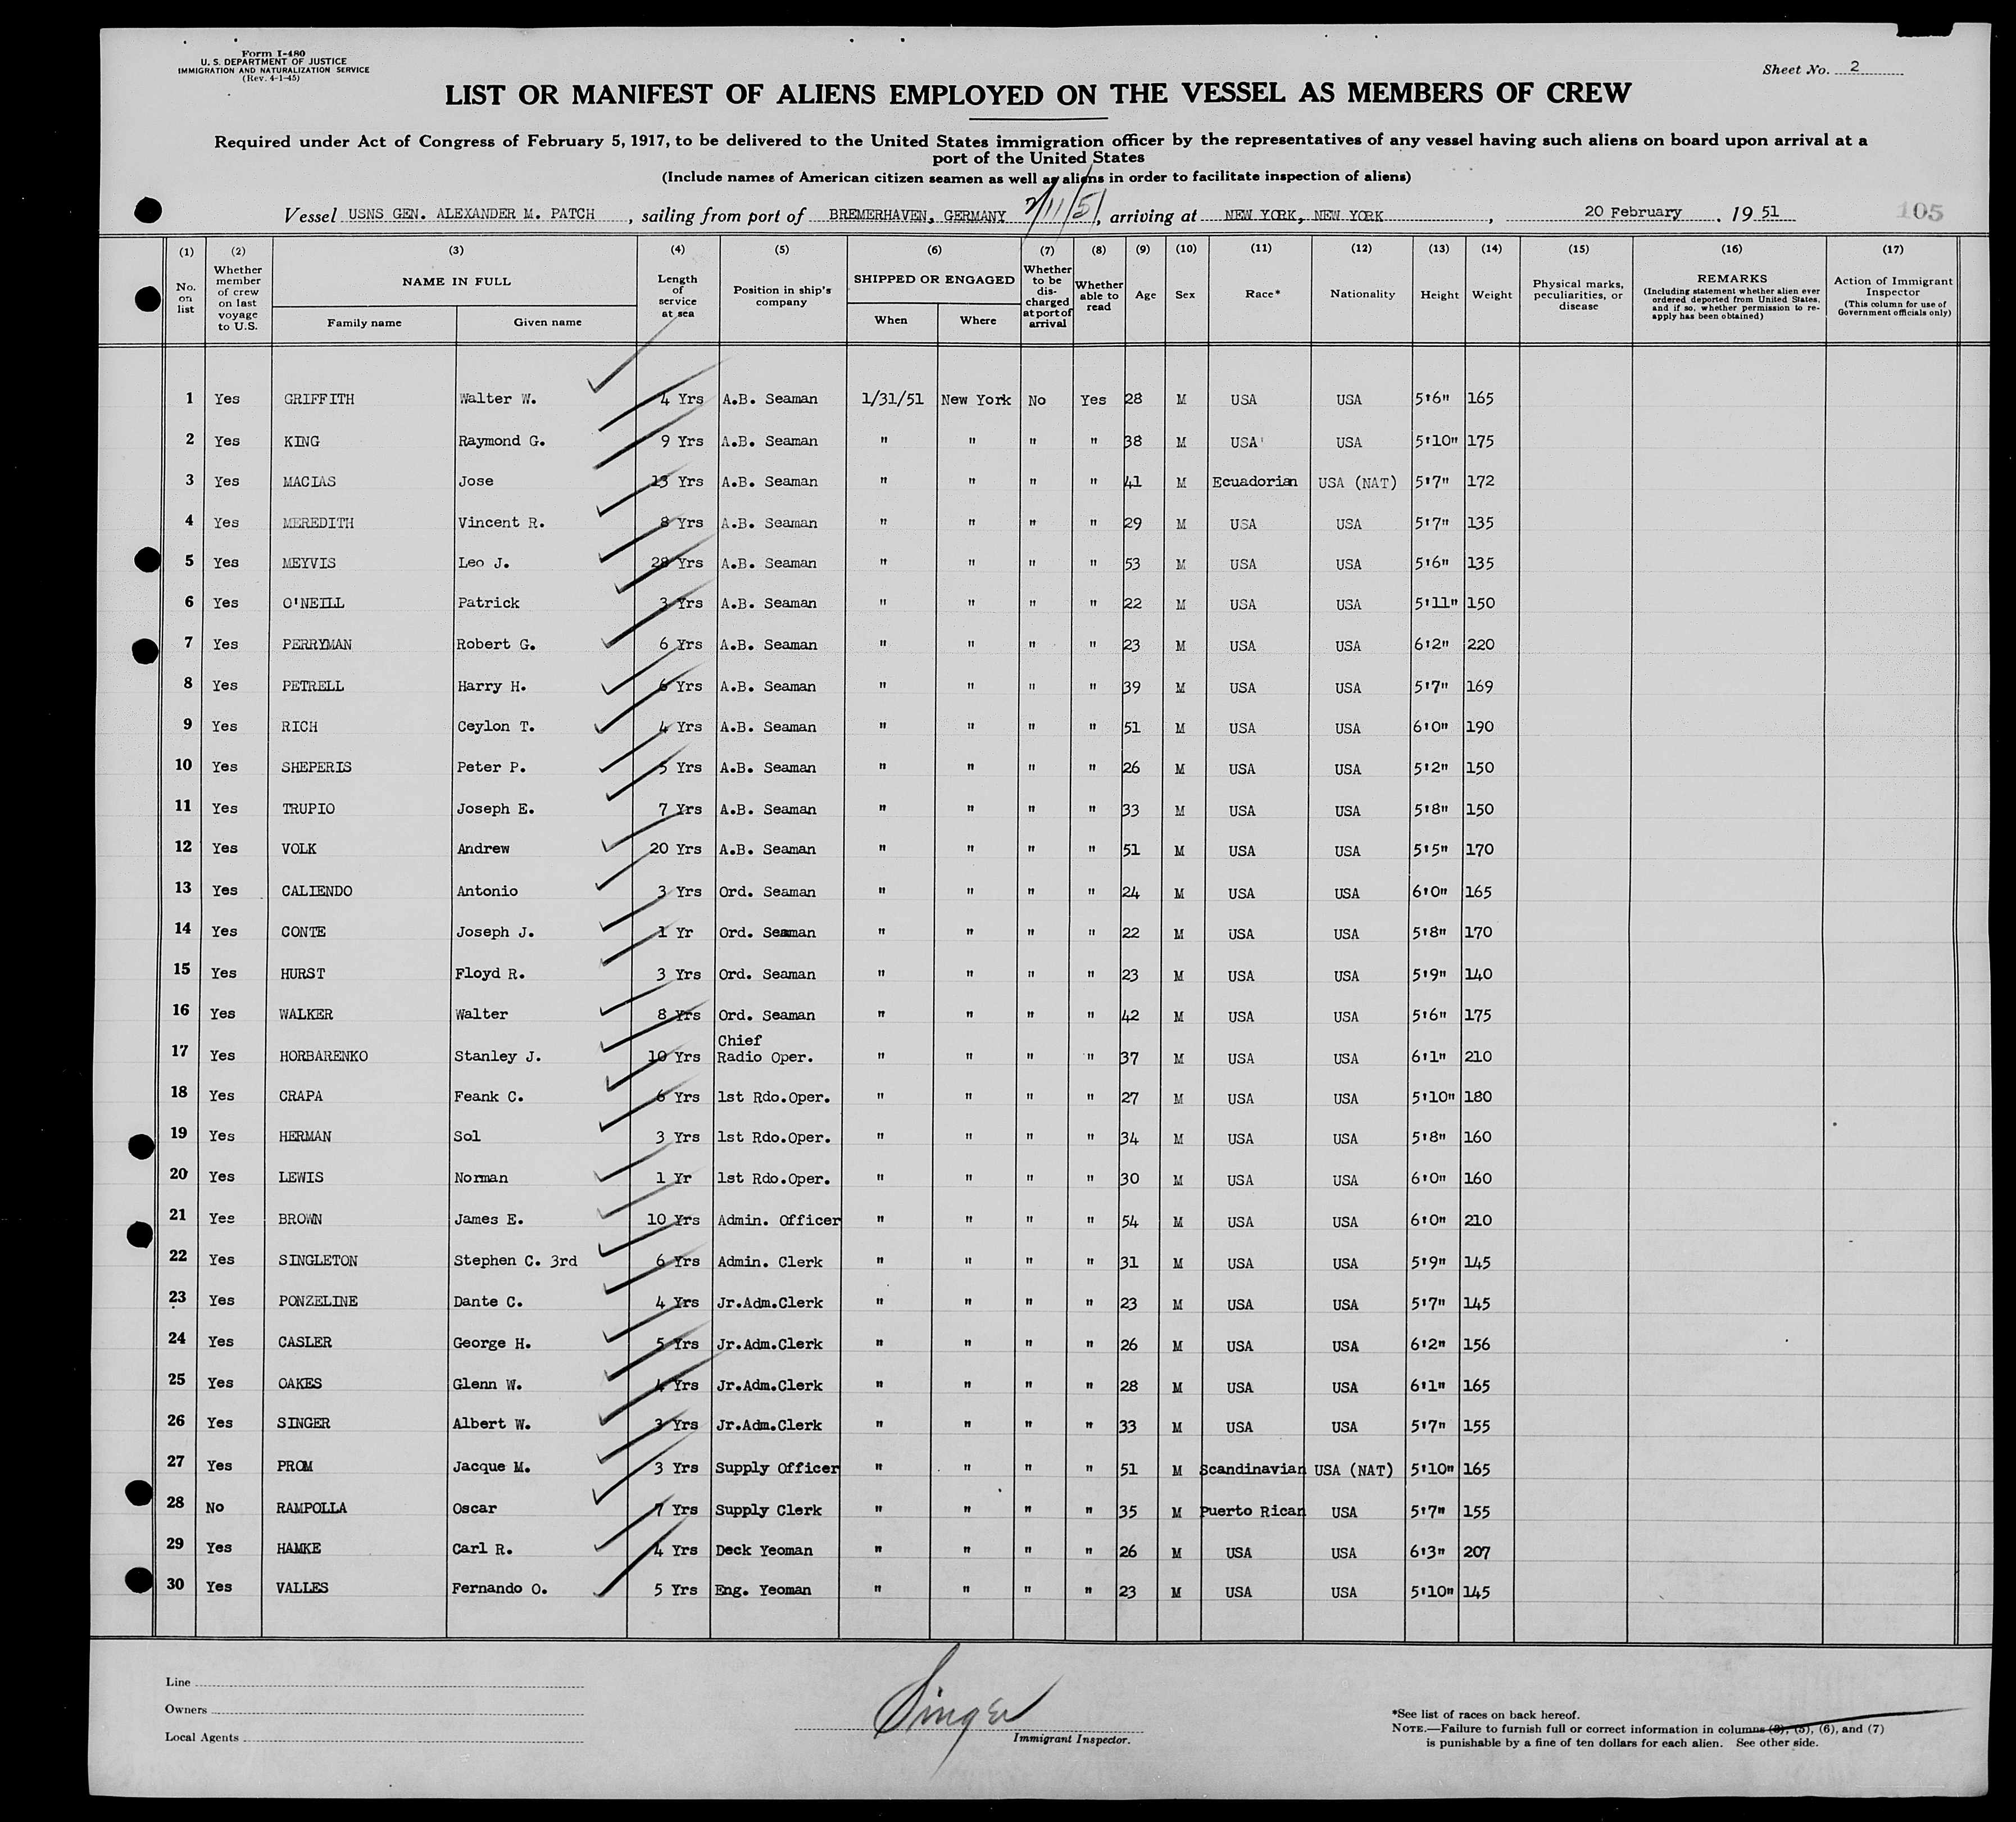 Form I-480
U. S. DEPARTMENT OF JUSTICE
IMMIGRATION AND NATURALIZATION SERVICE
(Rev. 4-1-45)
Sheet No. 2
LIST OR MANIFEST OF ALIENS EMPLOYED ON THE VESSEL AS MEMBERS OF CREW
Required under Act of Congress of February 5, 1917, to be delivered to the United States immigration officer by the representatives of any vessel having such aliens on board upon arrival at a
port of the United States
(Include names of American citizen seamen as well as aliens in order to facilitate inspection of aliens)
Vessel USNS GEN. ALEXANDER M. PATCH, sailing from port of BREMERHAVEN, GERMANY 2/11/51, arriving at NEW YORK, NEW YORK, 20 February, 19 51 105
(1) (2) (3) (4) (5) (6) (7) (8) (9) (10) (11) (12) (13) (14) (15) (16) (17)
No. on list
Whether member of crew on last voyage to U.S.
NAME IN FULL
Family name
Given name
Length of service at sea
Position in ship's company
SHIPPED OR ENGAGED
When
Where
Whether to be discharged at port of arrival
Whether able to read
Age
Sex
Race*
Nationality
Height
Weight
Physical marks, peculiarities, or disease
REMARKS
(Including statement whether alien ever ordered deported from United States, and if so, whether permission to reapply has been obtained)
Action of Immigrant Inspector
(This column for use of Government officials only)
1 Yes GRIFFITH Walter W. 4 Yrs A.B. Seaman 1/31/51 New York No Yes 28 M USA USA 5'6" 165
2 Yes KING Raymond G. 9 Yrs A.B. Seaman " " " " 38 M USA USA 5'10" 175
3 Yes MACIAS Jose 13 Yrs A.B. Seaman " " " " 41 M Ecuadorian USA (NAT) 5'7" 172
4 Yes MEREDITH Vincent R. 8 Yrs A.B. Seaman " " " " 29 M USA USA 5'7" 135
5 Yes MEYVIS Leo J. 28 Yrs A.B. Seaman " " " " 53 M USA USA 5'6" 135
6 Yes O'NEILL Patrick 3 Yrs A.B. Seaman " " " " 22 M USA USA 5'11" 150
7 Yes PERRYMAN Robert G. 6 Yrs A.B. Seaman " " " " 23 M USA USA 6'2" 220
8 Yes PETRELL Harry H. 6 Yrs A.B. Seaman " " " " 39 M USA USA 5'7" 169
9 Yes RICH Ceylon T. 4 Yrs A.B. Seaman " " " " 51 M USA USA 6'0" 190
10 Yes SHEPERIS Peter P. 5 Yrs A.B. Seaman " " " " 26 M USA USA 5'2" 150
11 Yes TRUPIO Joseph E. 7 Yrs A.B. Seaman " " " " 33 M USA USA 5'8" 150
12 Yes VOLK Andrew 20 Yrs A.B. Seaman " " " " 51 M USA USA 5'5" 170
13 Yes CALIENDO Antonio 3 Yrs Ord. Seaman " " " " 24 M USA USA 6'0" 165
14 Yes CONTE Joseph J. 1 Yr Ord. Seaman " " " " 22 M USA USA 5'8" 170
15 Yes HURST Floyd R. 3 Yrs Ord. Seaman " " " " 23 M USA USA 5'9" 140
16 Yes WALKER Walter 8 Yrs Ord. Seaman " " " " 42 M USA USA 5'6" 175
17 Yes HORBARENKO Stanley J. 10 Yrs Chief Radio Oper. " " " " 37 M USA USA 6'1" 210
18 Yes CRAPA Feank C. 6 Yrs 1st Rdo.Oper. " " " " 27 M USA USA 5'10" 180
19 Yes HERMAN Sol 3 Yrs 1st Rdo.Oper. " " " " 34 M USA USA 5'8" 160
20 Yes LEWIS Norman 1 Yr 1st Rdo.Oper. " " " " 30 M USA USA 6'0" 160
21 Yes BROWN James E. 10 Yrs Admin. Officer " " " " 54 M USA USA 6'0" 210
22 Yes SINGLETON Stephen C. 3rd 6 Yrs Admin. Clerk " " " " 31 M USA USA 5'9" 145
23 Yes PONZELINE Dante C. 4 Yrs Jr.Adm.Clerk " " " " 23 M USA USA 5'7" 145
24 Yes CASLER George H. 5 Yrs Jr.Adm.Clerk " " " " 26 M USA USA 6'2" 156
25 Yes OAKES Glenn W. 4 Yrs Jr.Adm.Clerk " " " " 28 M USA USA 6'1" 165
26 Yes SINGER Albert W. 3 Yrs Jr.Adm.Clerk " " " " 33 M USA USA 5'7" 155
27 Yes PROM Jacque M. 3 Yrs Supply Officer " " " " 51 M Scandinavian USA (NAT) 5'10" 165
28 No RAMPOLLA Oscar 7 Yrs Supply Clerk " " " " 35 M Puerto Rican USA 5'7" 155
29 Yes HAMKE Carl R. 4 Yrs Deck Yeoman " " " " 26 M USA USA 6'3" 207
30 Yes VALLES Fernando O. 5 Yrs Eng. Yeoman " " " " 23 M USA USA 5'10" 145
Line
Owners
Local Agents
Singer
Immigrant Inspector.
*See list of races on back hereof.
NOTE.—Failure to furnish full or correct information in columns (3), (5), (6), and (7)
is punishable by a fine of ten dollars for each alien. See other side.